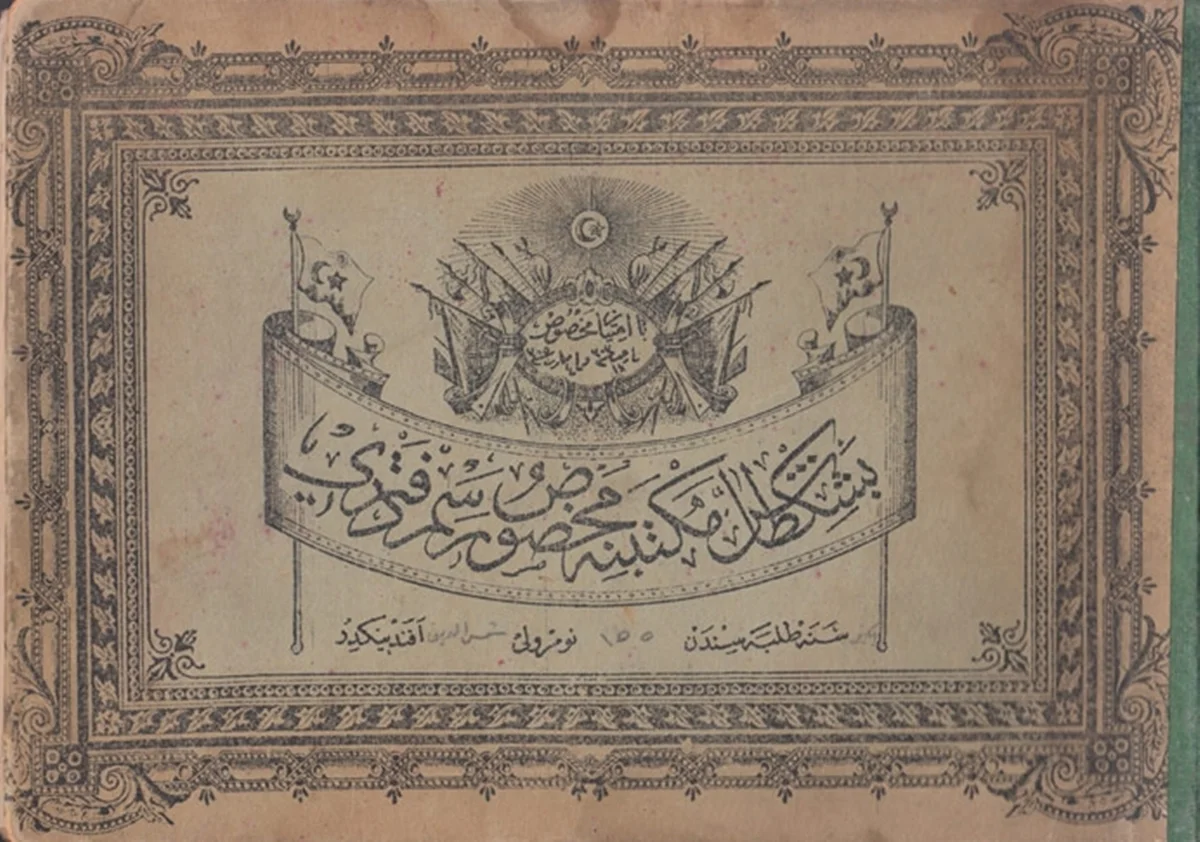 با امتيا مخصوص
بشكطاش مكتبنه مخصوص رسم دفتری
سنه طلبه سندن ١٥٥ نومرولی شمس الدين افندينكدر